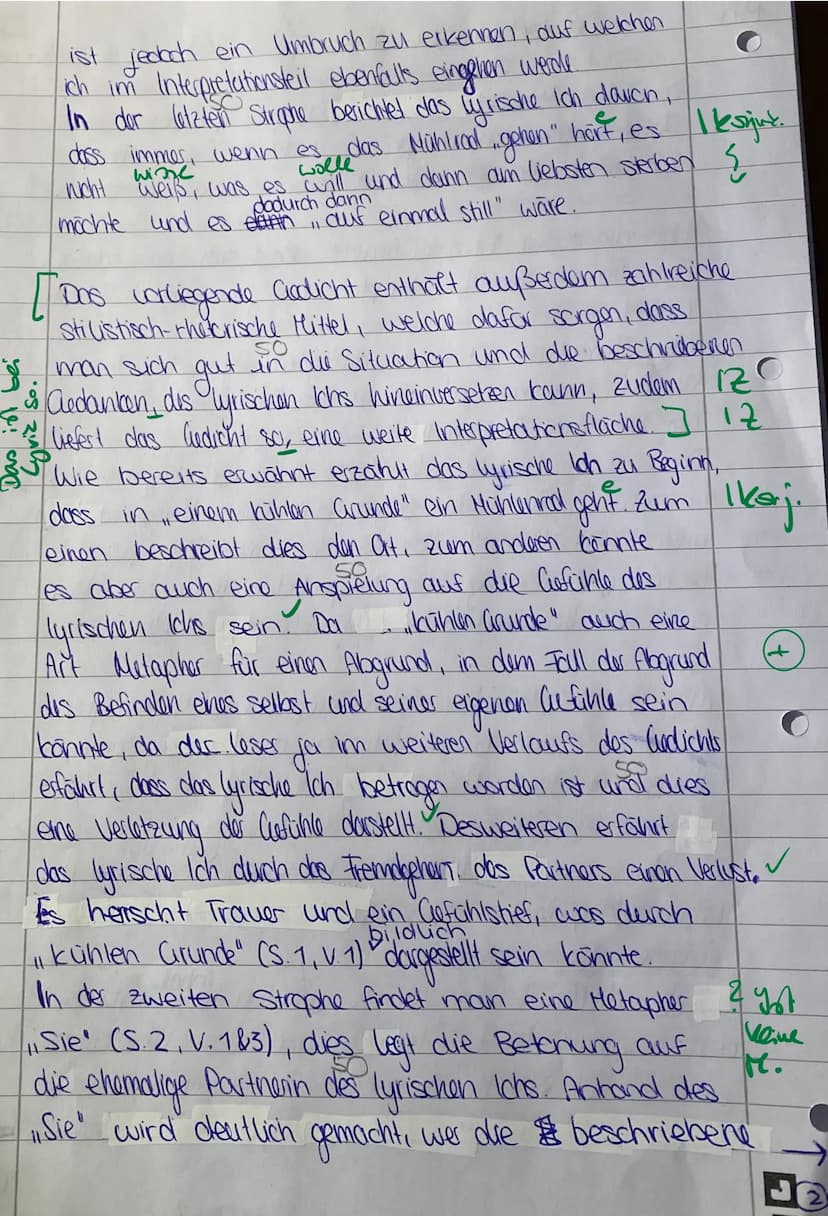 ist jedoch ein Umbruch zu erkennen, auf welchen
ich im Interpretationsteil ebenfalls eingehen werde
50
In der letzten Strophe berichtet das lyrische Ich davon,
dass immer, wenn es das Mühlrad „gehen" hört, es
e
1 Konjunkt.
wisse
wolle
nicht weiß, was es will und dann am liebsten sterben
dadurch dann
möchte und es dann „auf einmal still" wäre.
[Das vorliegende Gedicht enthält außerdem zahlreiche
stilistisch-rhetorische Mittel, welche dafür sorgen, dass
50
man sich gut in die Situation und die beschriebenen
Gedanken, des lyrischen Ichs hineinversetzen kann, zudem
1Z
liefert das Gedicht so, eine weite Interpretationsfläche.]
1Z
Das ist bei
Lyrik so.
Wie bereits erwähnt erzählt das lyrische Ich zu Beginn,
dass in „einem kühlen Grunde" ein Mühlenrad geht. Zum
e
1 Konj.
einen beschreibt dies den Ort, zum anderen könnte
50
es aber auch eine Anspielung auf die Gefühle des
lyrischen Ichs sein. Da „kühlen Grunde" auch eine
Art Metapher für einen Abgrund, in dem Fall der Abgrund
+
des Befinden eines selbst und seiner eigenen Gefühle sein
könnte, da der Leser ja im weiteren Verlaufs des Gedichts
50
erfährt, dass das lyrische Ich betrogen worden ist und dies
eine Verletzung der Gefühle darstellt. Desweiteren erfährt
das lyrische Ich durch das Fremdgehen des Partners einen Verlust.
Es herscht Trauer und ein Gefühlstief, was durch
bildlich
„kühlen Grunde" (S.1, V.1) dargestellt sein könnte.
In der zweiten Strophe findet man eine Metapher
? Ist
keine
M.
„Sie" (S.2, V.1&3), dies legt die Betonung auf
50
die ehemalige Partnerin des lyrischen Ichs. Anhand des
„Sie" wird deutlich gemacht, wer die beschriebene
→
J
2